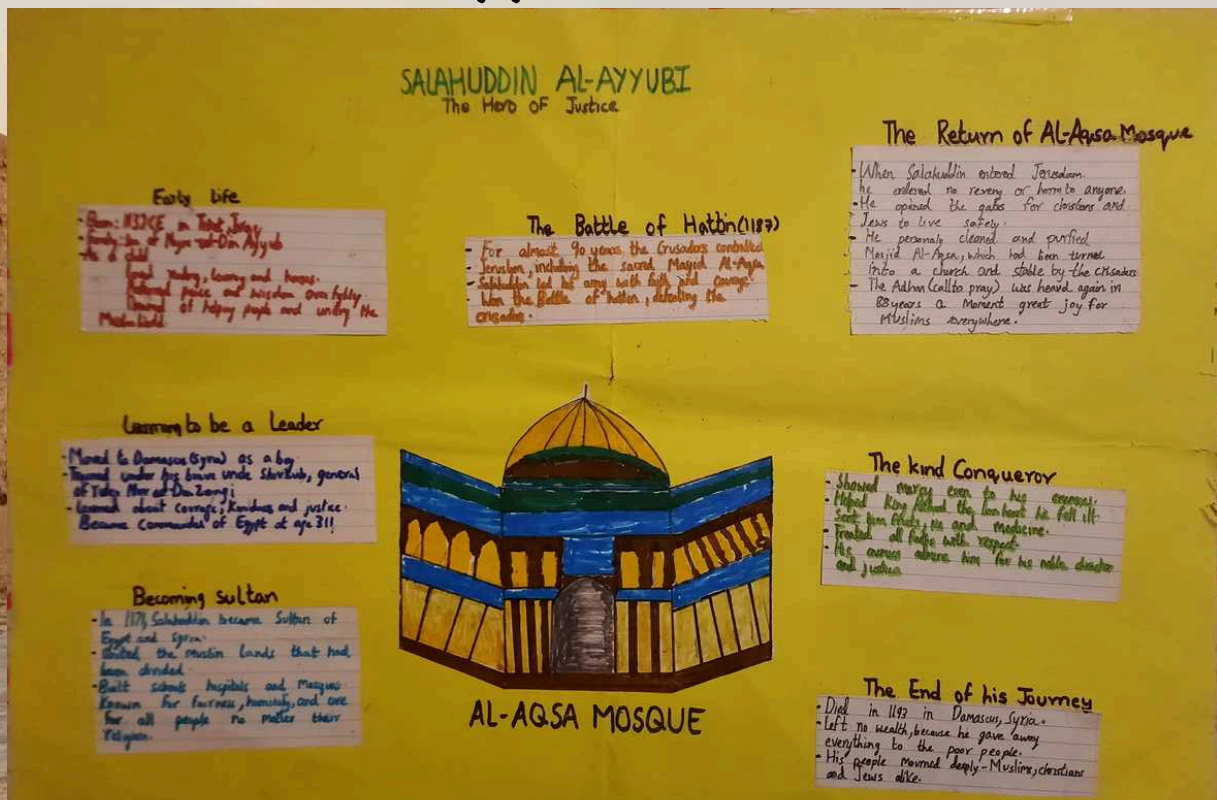 SALAHUDDIN AL-AYYUBI
The Hero of Justice
Early life
- Born: 1137CE in Tekrit, Iraq
- Family: son of Najm ad-Din Ayyub
- As a child
loved reading, learning and horses.
Preferred peace and wisdom over fighting.
Dreamed of helping people and uniting the
Muslim World
Learning to be a Leader
- Moved to Damascus (Syria) as a boy.
- Trained under his brave uncle Shirkuh, general
of Nur ad-Din Zengi
- Learned about courage, Kindness and justice.
Became commander of Egypt at age 31!
Becoming sultan
- In 1174 Salahuddin became Sultan of
Egypt and Syria.
- United the muslin lands that had
been divided.
- Built schools hospitals and Mosques
Known for fairness, humility, and care
for all people no matter their
religion.
The Battle of Hattin (1187)
- For almost 90 years, the Crusaders controlled
Jerusalem, including the sacred Masjid Al-Aqsa
- Salahuddin led his army with faith and courage.
- Won the Battle of Hattin, defeating the
crusaders.
AL-AQSA MOSQUE
The Return of AL-Aqsa Mosque
- When Salahuddin entered Jerusalam.
he ordered no reveng or harm to anyone.
- He opened the gates for christians and
Jews to live safely.
- He personaly cleaned and purified
Masjid Al-Aqsa, which had been turned
into a church and stable by the crusaders
- The Adhan (call to pray) was heard again in
88 years a moment great joy for
Muslims everywhere.
The kind Conqueror
- Showed mercy even to his enemies.
- Helped King Richard the lion heart he fell ill.
Sent him fruits, ice and medicine.
- Treated all people with respect
- His enemies admire him for his noble character
and justice
The End of his Journey
- Died in 1193 in Damascus, Syria.
- Left no wealth, because he gave away
everything to the poor people.
- His people mourned deeply - Muslims, christians
and Jews alike.